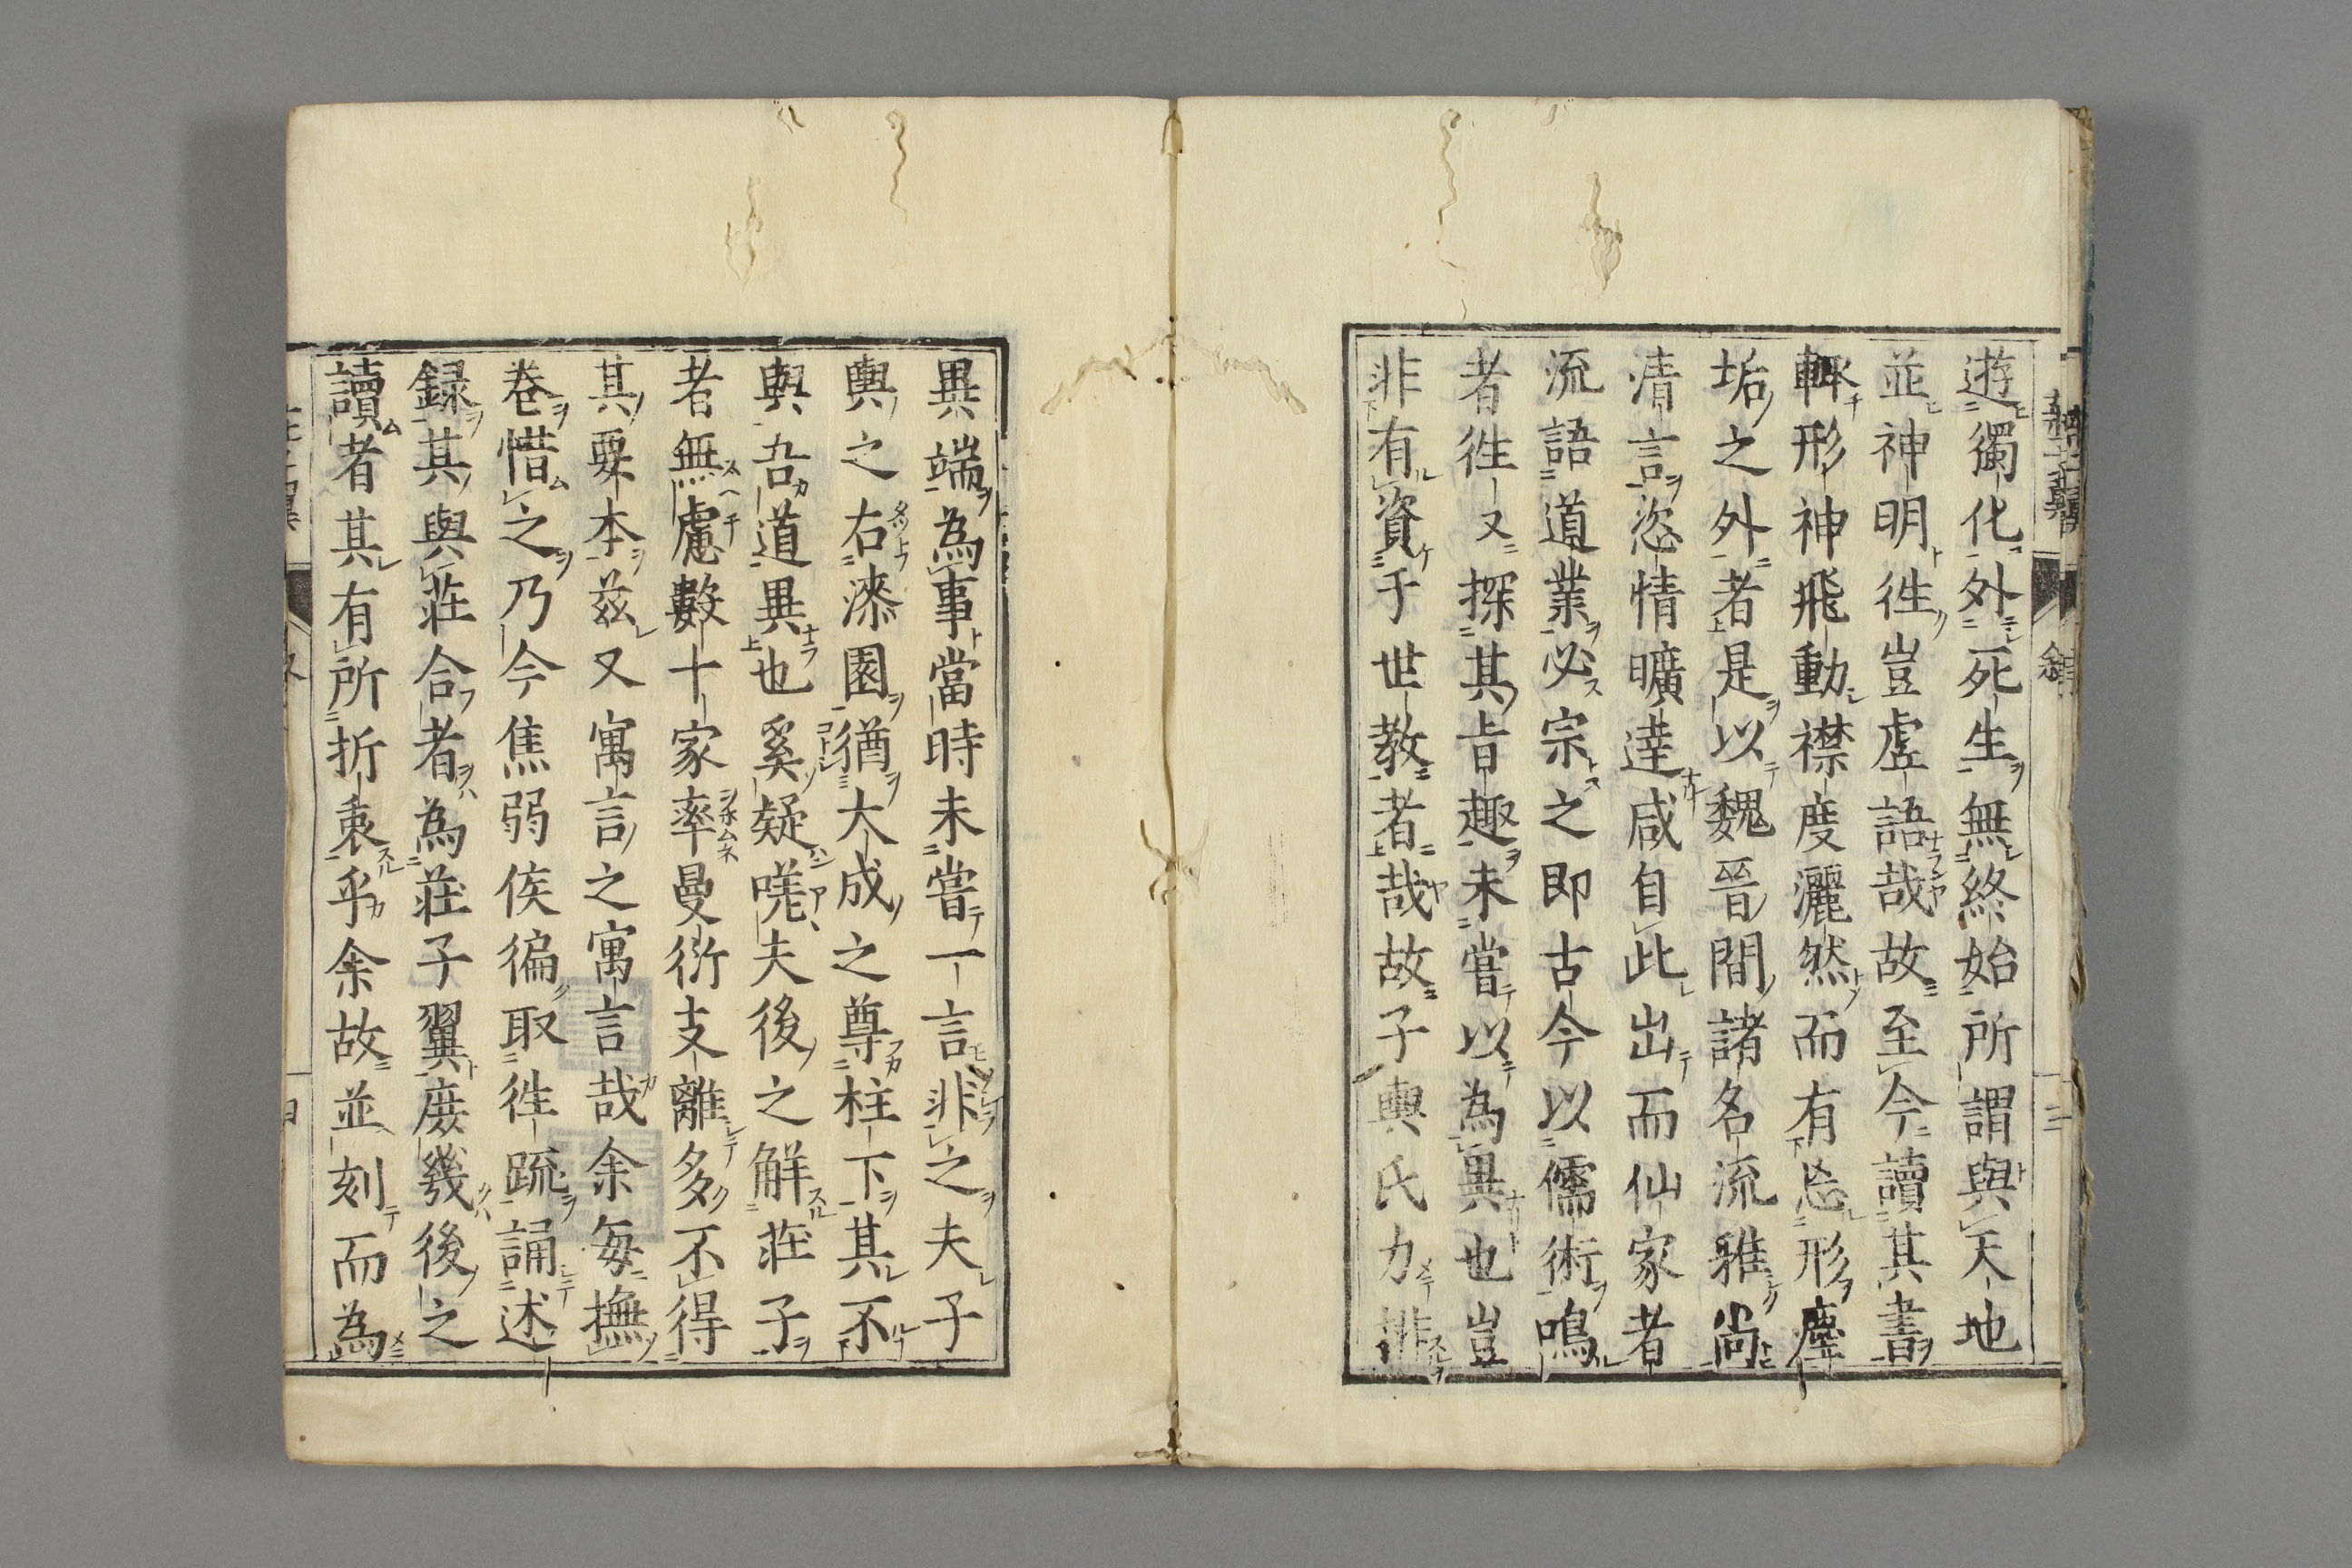 遊獨化外死生無終始所謂與天地
並神明徃豈虛語哉故至今讀其書
輙形神飛動襟度灑然而有忘形塵
垢之外者是以魏晉間諸名流雅尚
清言恣情曠達咸自此出而仙家者
流語道業必宗之即古今以儒術鳴
者徃又探其旨趣未嘗以為異也豈
非有資于世教者哉故子輿氏力排
異端為事當時未嘗一言非之夫子
輿之右漆園猶大成之尊柱下其不
與吾道異也奚疑嘵夫後之解莊子
者無慮數十家率曼衍支離多不得
其要本兹又寓言之寓言哉余每撫
卷惜之乃今焦弱侯徧取徃疏誦述
録其與莊合者為莊子翼庶幾後之
讀者其有所折衷乎余故並刻而為